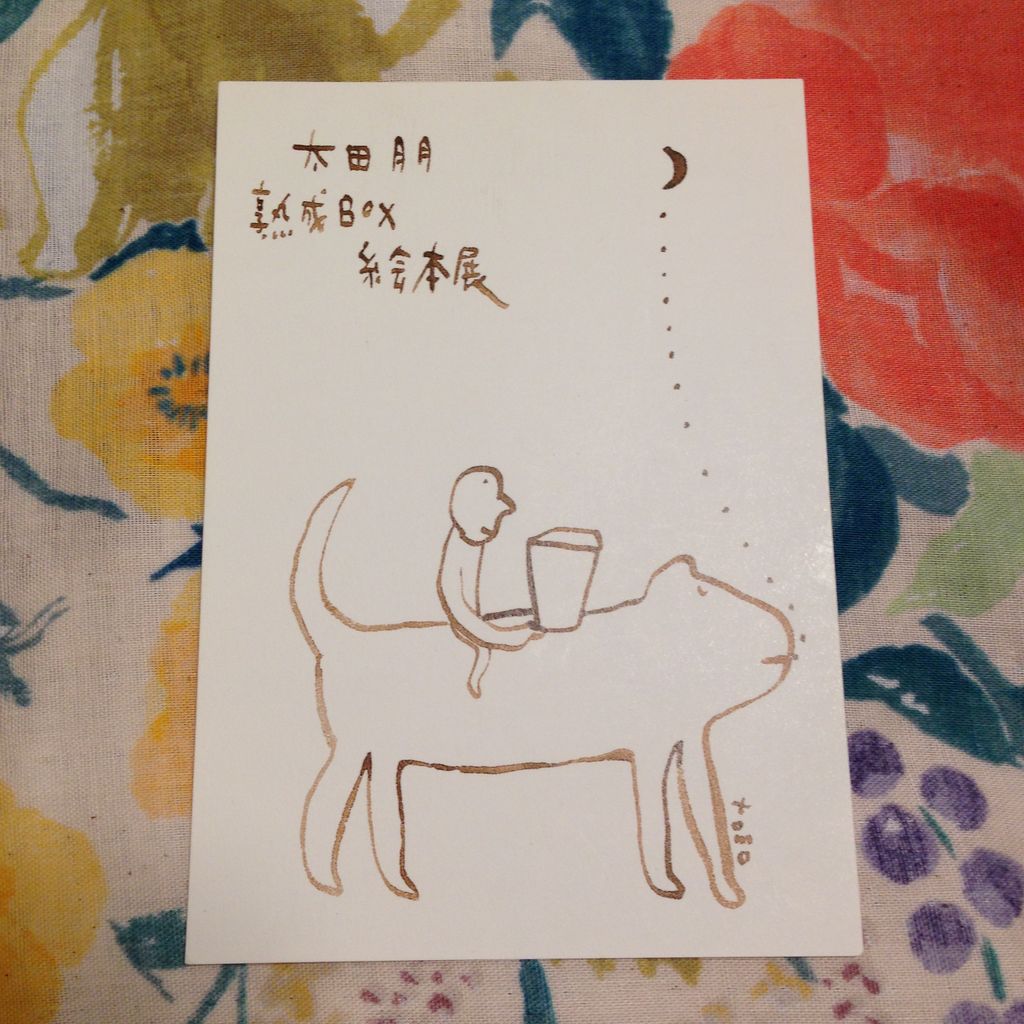 太田朋
熟成BOX
絵本展
tomo